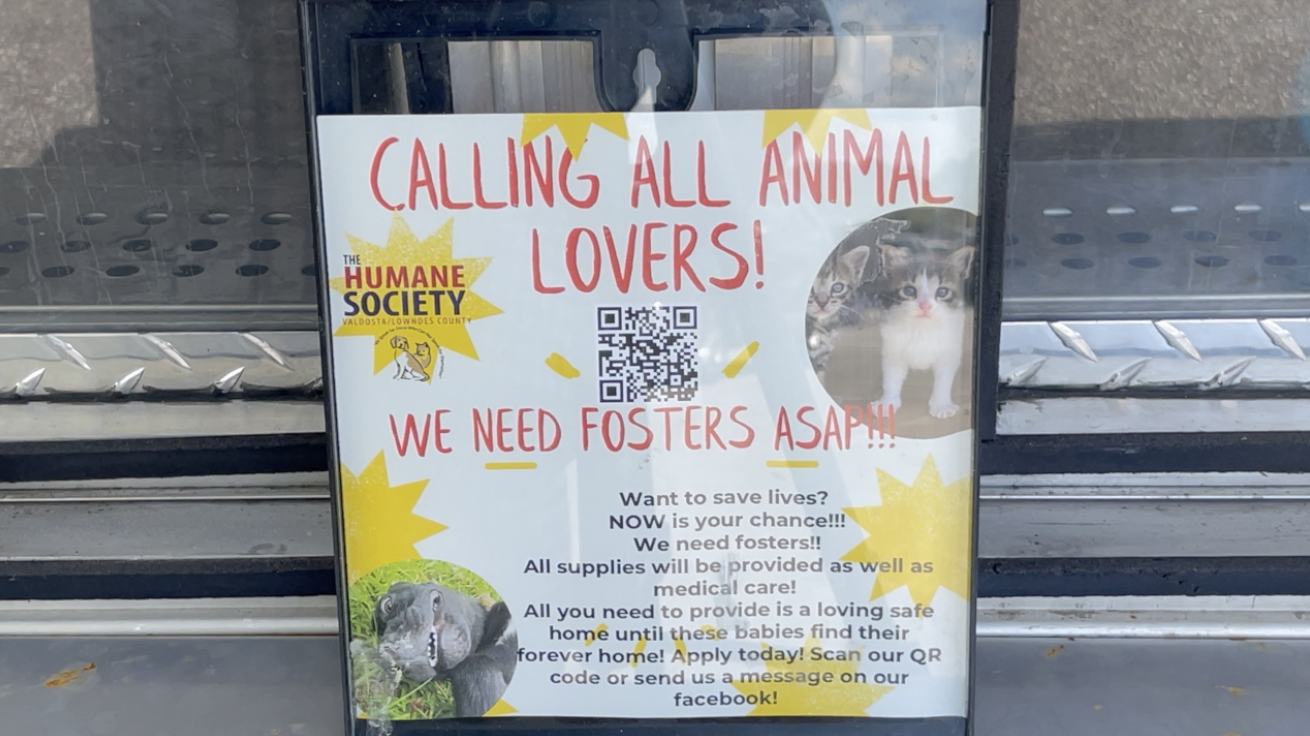 CALLING ALL ANIMAL
LOVERS!
THE
HUMANE
SOCIETY
VALDOSTA/LOWNDES COUNTY
WE NEED FOSTERS ASAP!!!
Want to save lives?
NOW is your chance!!!
We need fosters!!
All supplies will be provided as well as
medical care!
All you need to provide is a loving safe
home until these babies find their
forever home! Apply today! Scan our QR
code or send us a message on our
facebook!